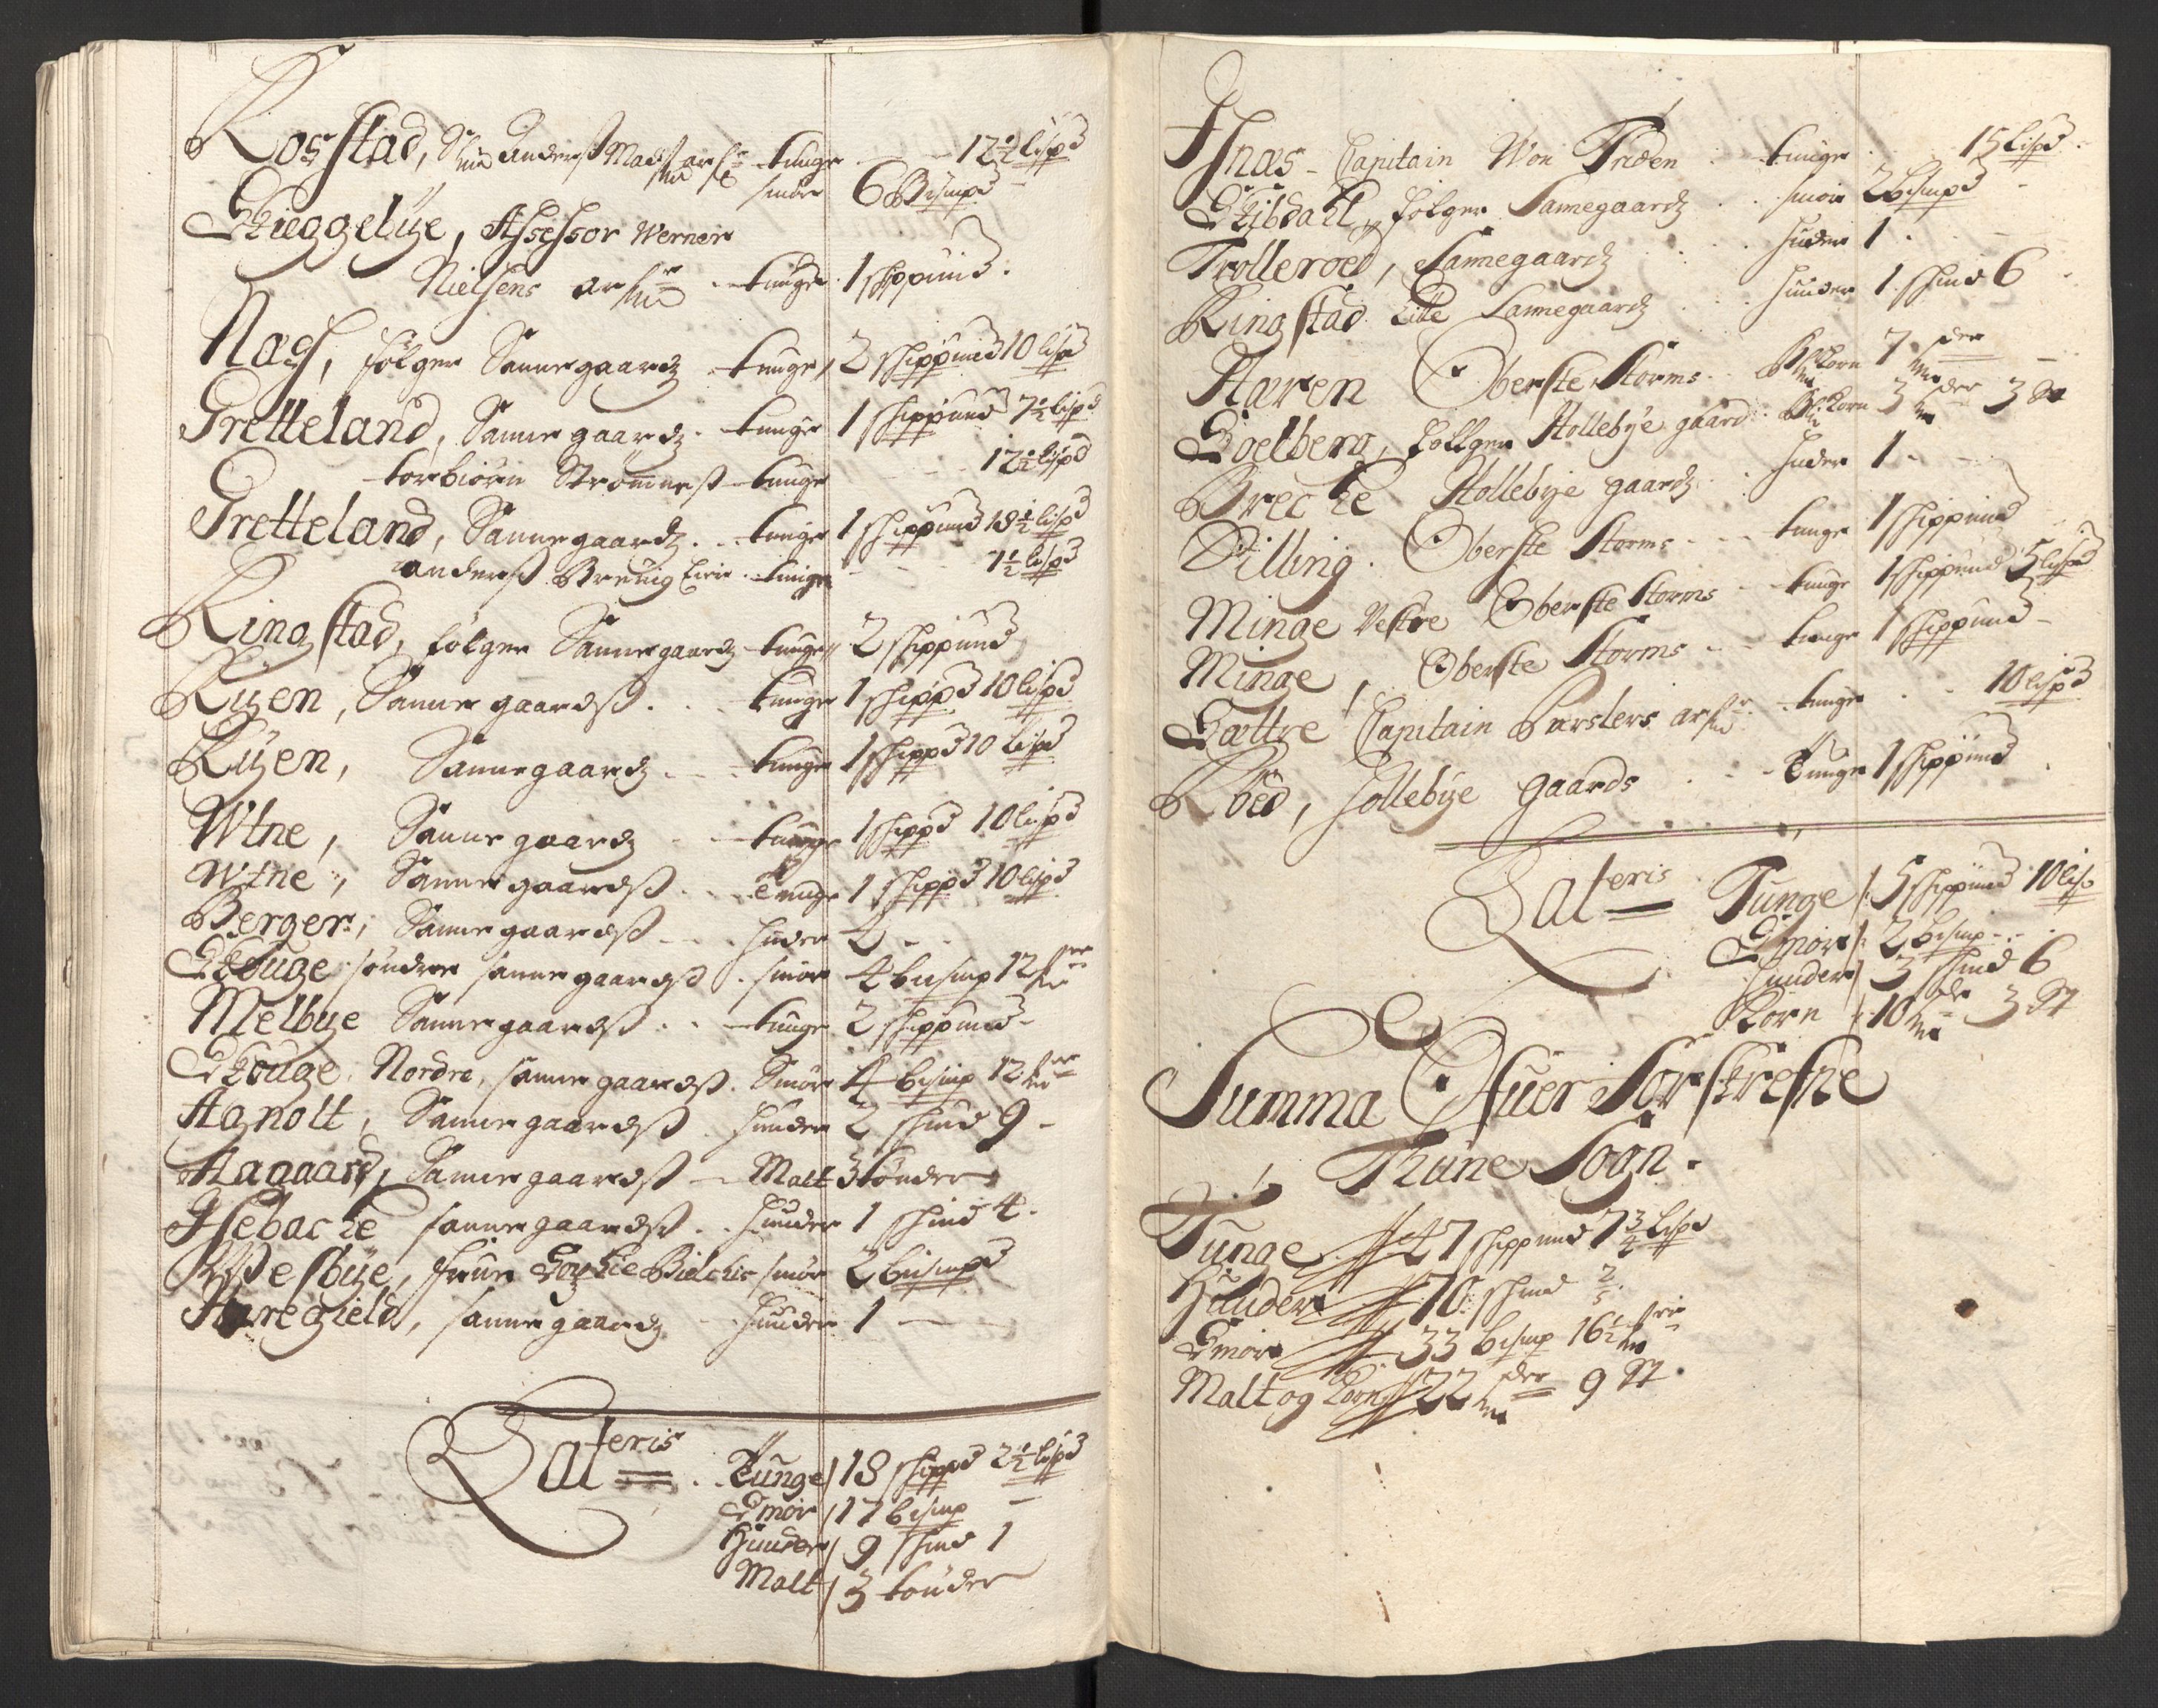 Rosstad, Sl Anders Madss arf: tunge 12½ lispd
smör 6 Bismpd
Skieggebye, Assessor Werner
Nielsens arf: tunge 1 schippund
Naess, fölger Sannegaardz tunge 2 schippund 10 lispd
Gretteland, Sannegaardz tunge 1 schippund 7½ lispd
torbiörn Strömnesß tunge 12½ lispd
Gretteland, Sannegaardz tunge 1 schippund 18½ lispd
anderß Breuig tunge 7½ lispd
Ringstad, fölger Sannegaardz tunge 2 schippund
Ryen, Sannegaardß tunge 1 schippd 10 lispd
Ryen, Sannegaardz tunge 1 schippd 10 lispd
Wtne, Sannegaardz tunge 1 schippd 10 lispd
Wtne, Sannegaardß tunge 1 schippd 10 lispd
Berger, Sannegaardß huder 2
Skouge söndre sannegaardß smör 4 bismp 12
Melbye Sannegaardß tunge 2 schippund
Skouge Nordre, sannegaardß Smör 4 bismp 12
Agnolt, Sannegaardß huuder 2 schind 9
Aagaard, Sannegaardß Malt 3 tönder
Isebacke sannegaardß huuder 1 schind 4
Wesbye, frue Bielchis smör 2 bismpd
Haregield, sannegaardz huuder 1
Lateris Tunge 18 schippd 2½ lispd
Smör 17 bismp
Huuder 9 schind 1
Malt 3 tönder
Isnæs Capitain Von Triden tunge 15 lispd
Skibdahl, fölger Samegaardz smör 2 bismpd
Trolleroed, Samegaardz huder 1
Ringstad Lille Samegaardz huuder 1 schind 6
Haren Oberste Storms Bl: Korn 7
Goelberg, follger Hollebye gaard Bl: Korn 3 3
Brecke Hollebye gaardz huder 1
Dilling Oberste Storms tunge 1 schippund
Minge Vestre Oberste Storms tunge 1 schippund 5 lispd
Minge, Oberste Storms tunge 1 schippund
Gættre Capitain arf: tunge 10 lispd
Röed, Hollebye gaards Tunge 1 schippund
Lateris Tunge 5 schippund 10 lisp
Smör 2 bismp
huuder 3 schind 6
Korn 10 3
Summa Ofuer Forskrefne
Thune Sogn.
Tunge 47 schippund 7¾ lispd
Huuder 70 schind
Smör 33 bismp 16½
Malt og Korn 22 9